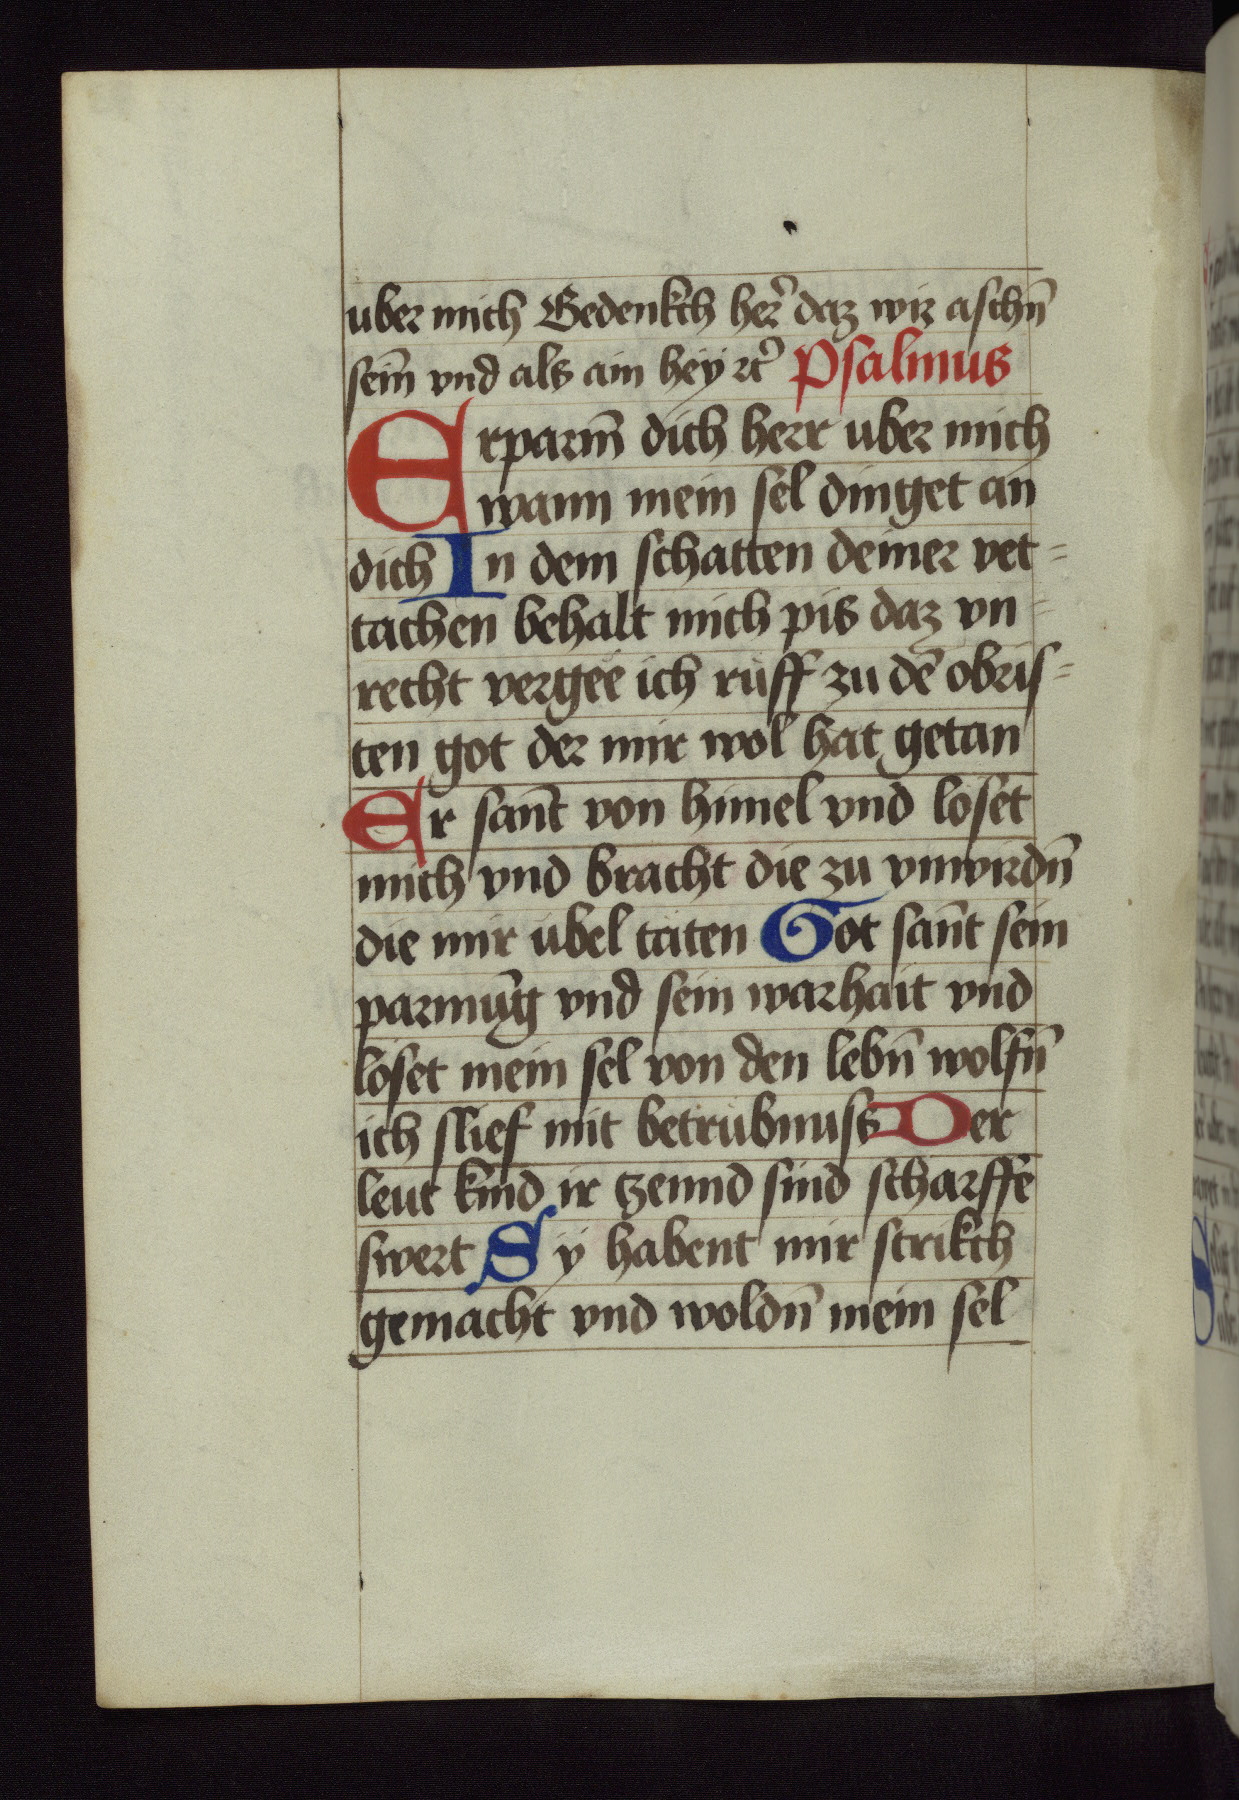 uber mich Gedenkch her̉ daz wir aschn̄
sein̄ vnd als ain hey ꝛc̉ Psalmus
Erparm̄ dich herr uber mich
wann mein sel dinget an
dich In dem schatten deiner vet=
tachen behalt mich pis daz vn=
recht vergee ich rüff zu dē obris=
ten got der mir wol hat getan
Er sant̄ von himel vnd löset
mich vnd bracht die zu vnwirdn̄
die mir übel täten Got sant̄ sein
parmūg vnd sein warhait vnd
löset mein sel von den lebn̄ wolfn̄
ich slief mit betrübnuss Der
leut kind ir tzennd sind scharffe
swert Sÿ habent mir strikch
gemacht vnd woldn̄ mein sel